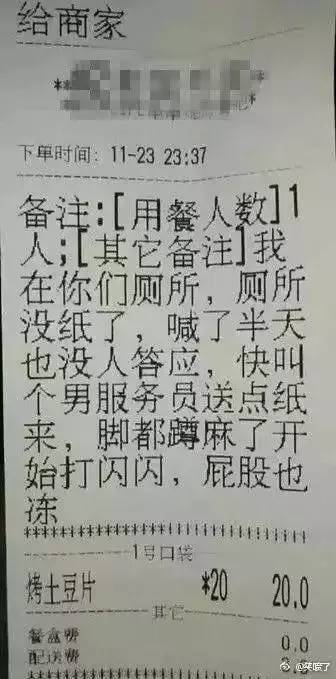 给商家
下单时间: 11-23 23:37
备注:[用餐人数]1
人;[其它备注]我
在你们厕所，厕所
没纸了，喊了半天
也没人答应，快叫
个男服务员送点纸
来，脚都蹲麻了开
始打闪闪，屁股也
冻
1号口袋
烤土豆片 *20 20.0
其它
餐盒费 0.0
配送费
@笑喷了